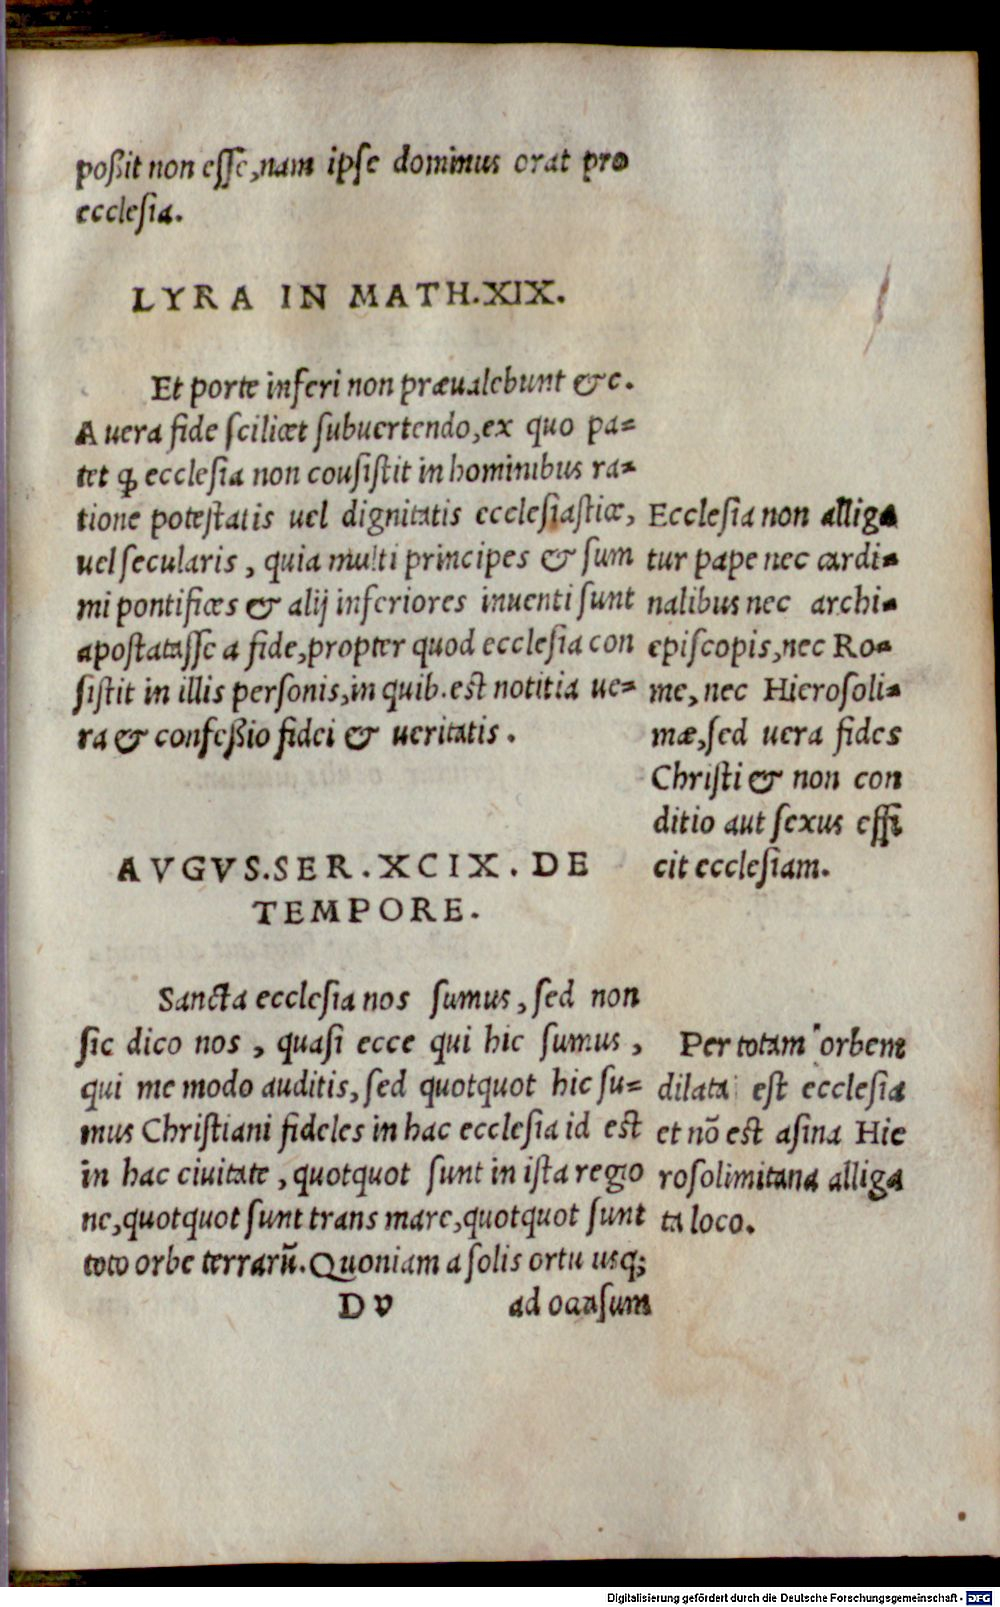 poßit non eſſe,nam ipſe dominus orat pro
eccleſia.
LYRA IN MATH.XIX.
Et porte inferi non præualebunt &c.
A uera fide ſcilicet ſubuertendo,ex quo pa=
tet ꝙ eccleſia non couſiſtit in hominibus ra=
tione poteſtatis uel dignitatis eccleſiaſticæ,
uel ſecularis, quia multi principes & ſum
mi pontifices & alij inferiores inuenti ſunt
apoſtataſſe a fide,propter quod eccleſia con
ſiſtit in illis perſonis,in quib.eſt notitia ue=
ra & confeßio fidei & ueritatis.
Eccleſia non alliga
tur pape nec cardi=
nalibus nec archi=
epiſcopis,nec Ro=
me,nec Hieroſoli=
mæ,ſed uera fides
Chriſti & non con
ditio aut ſexus effi
cit eccleſiam.
AVGVS.SER.XCIX.DE
TEMPORE.
Sancta eccleſia nos ſumus, ſed non
ſic dico nos, quaſi ecce qui hic ſumus,
qui me modo auditis, ſed quotquot hic ſu=
mus Chriſtiani fideles in hac eccleſia id eſt
in hac ciuitate, quotquot ſunt in iſta regio
ne,quotquot ſunt trans mare,quotquot ſunt
toto orbe terrarū. Quoniam a ſolis ortu usq;
Per totam orbem
dilata eſt eccleſia
et nō eſt aſina Hie
roſolimitana alliga
ta loco.
D v ad occaſum
Digitalisierung gefördert durch die Deutsche Forschungsgemeinschaft - DFG